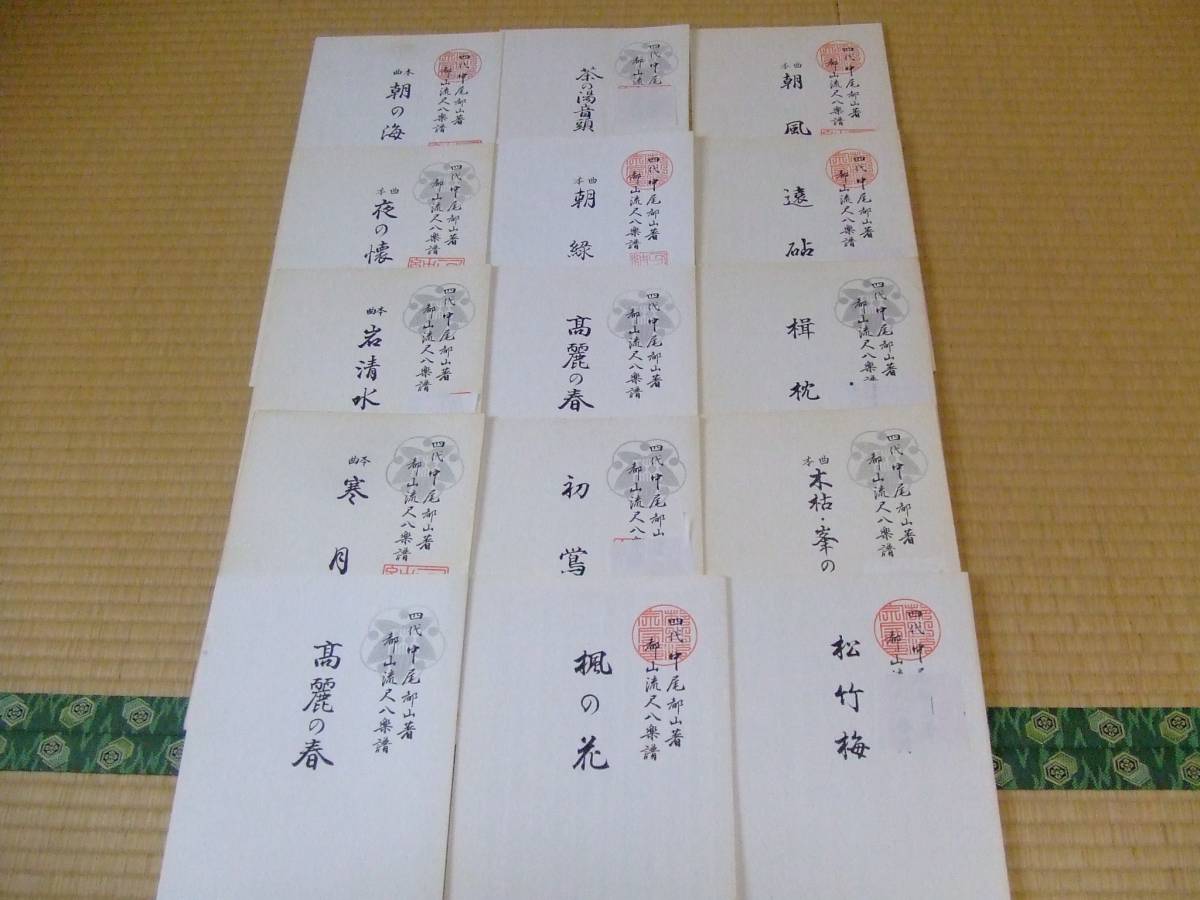 四代中尾都山著
都山流尺八樂譜
本曲
朝の海
四代中尾
都山流
茶の湯音頭
四代中尾都山著
都山流尺八樂譜
本曲
朝風
四代中尾都山著
都山流尺八樂譜
本曲
夜の懐
四代中尾都山著
都山流尺八樂譜
本曲
朝緑
四代中尾都山著
都山流尺八樂譜
遠砧
四代中尾都山著
都山流尺八樂譜
本曲
岩清水
四代中尾都山著
都山流尺八樂譜
高麗の春
四代中尾都山著
都山流尺八樂
楫枕
四代中尾都山著
都山流尺八樂譜
本曲
寒月
四代中尾都山
都山流尺八
初鶯
四代中尾都山著
都山流尺八樂譜
本曲
木枯・峯の
四代中尾都山著
都山流尺八樂譜
高麗の春
四代中尾都山著
都山流尺八樂譜
楓の花
四代中
都山
松竹梅